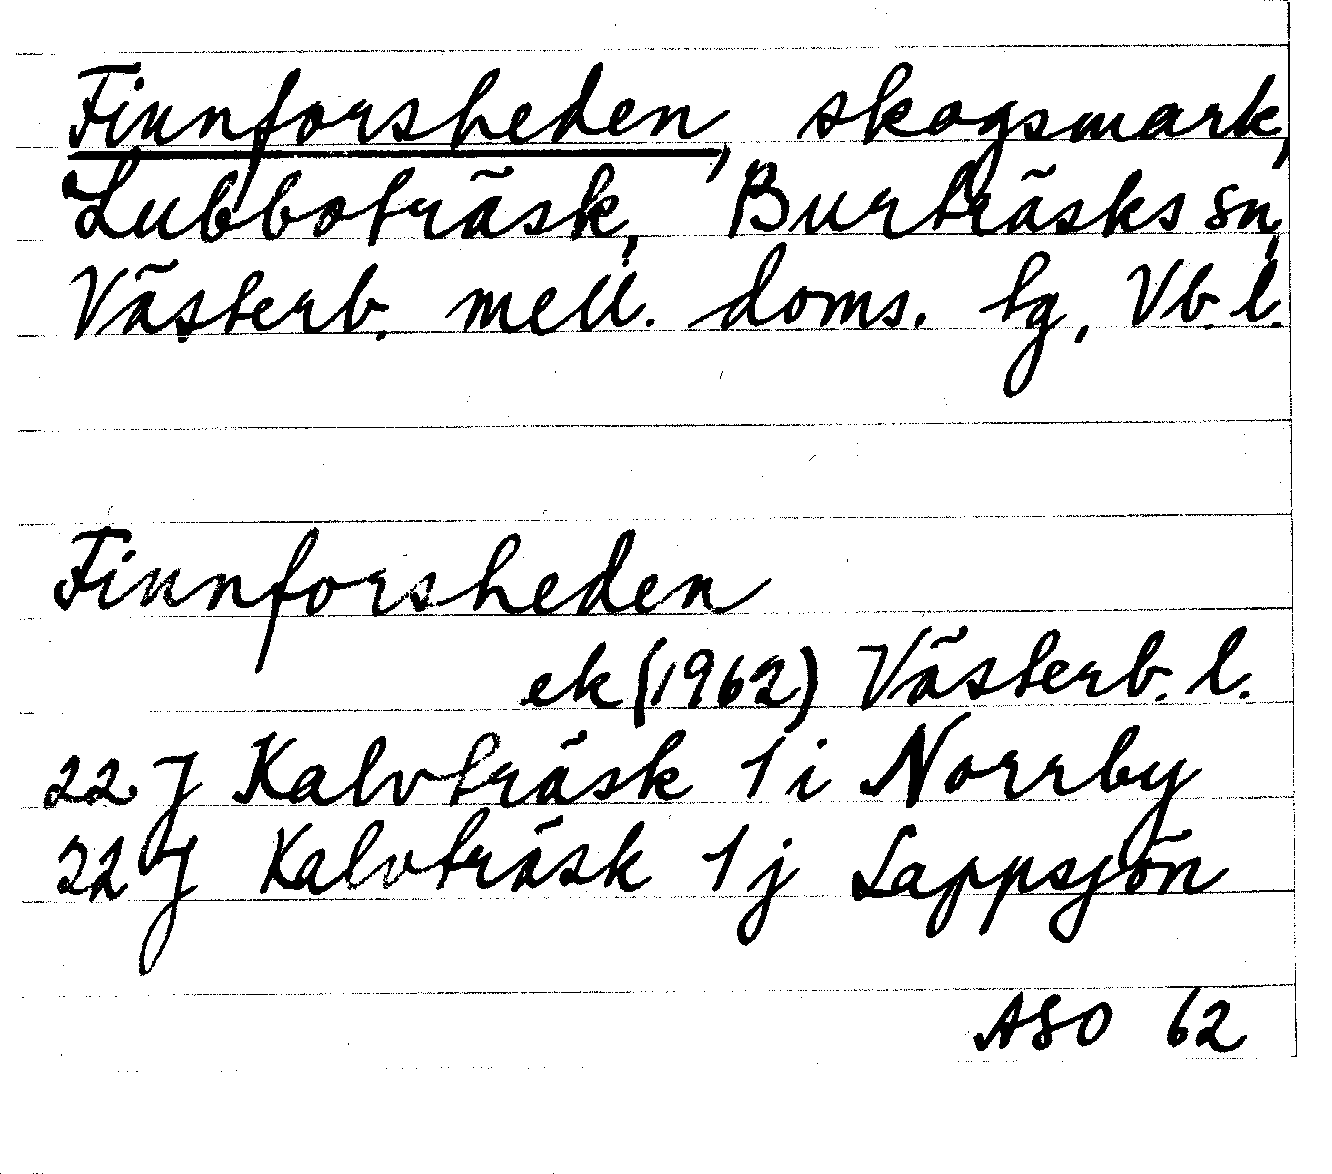 Finnforsheden, skogsmark,
Lubboträsk, Burträsks sn,
Västerb. mell. doms. tg, Vb. l.
Finnforsheden
ek (1962) Västerb. l.
22 J Kalvträsk 1 i Norrby
22 J Kalvträsk 1 j Lappsjön
ASO 62